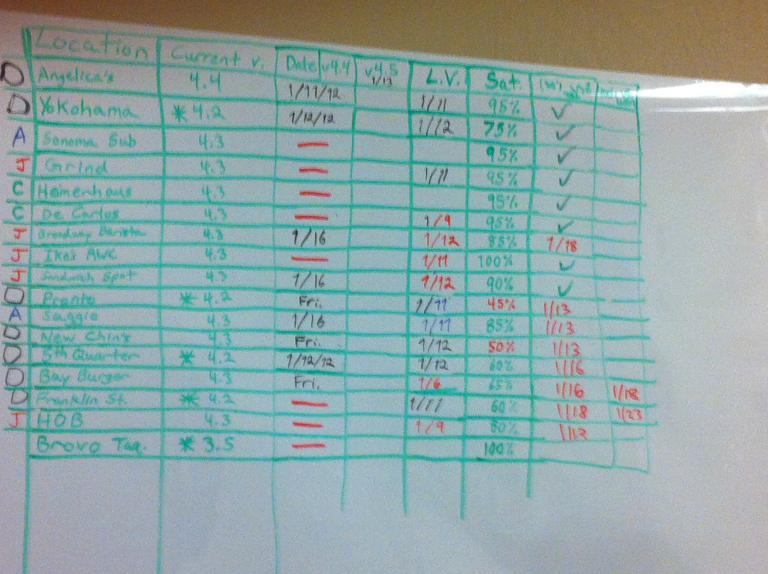 Location Current v. Date v4.4 v4.5 1/13 L.V. Sat.
D Angelica's 4.4 1/11/12 1/11 95% ✓
D Yokohama * 4.2 1/12/12 1/12 75% ✓
A Sonoma Sub 4.3 — 95% ✓
J Grind 4.3 — 1/11 95% ✓
C 4.3 — 95% ✓
C De Carlos 4.3 — 1/9 95% ✓
J Broadway Barista 4.3 1/16 1/12 85% 1/18
J Ike's 4.3 — 1/11 100% ✓
J Sandwich Spot 4.3 1/16 1/12 90% ✓
D Pronto * 4.2 Fri. 1/11 45% 1/13
A Saggio 4.3 1/16 1/11 85% 1/13
D New Chin's 4.3 Fri. 1/12 50% 1/13
D 5th Quarter * 4.2 1/12/12 1/12 60% 1/16
D Bay Burger 4.3 Fri. 1/6 65% 1/16 1/18
D Franklin St. * 4.2 — 1/11 60% 1/18 1/23
J HOB 4.3 — 1/9 80%
Bravo Taq. * 3.5 — 100%